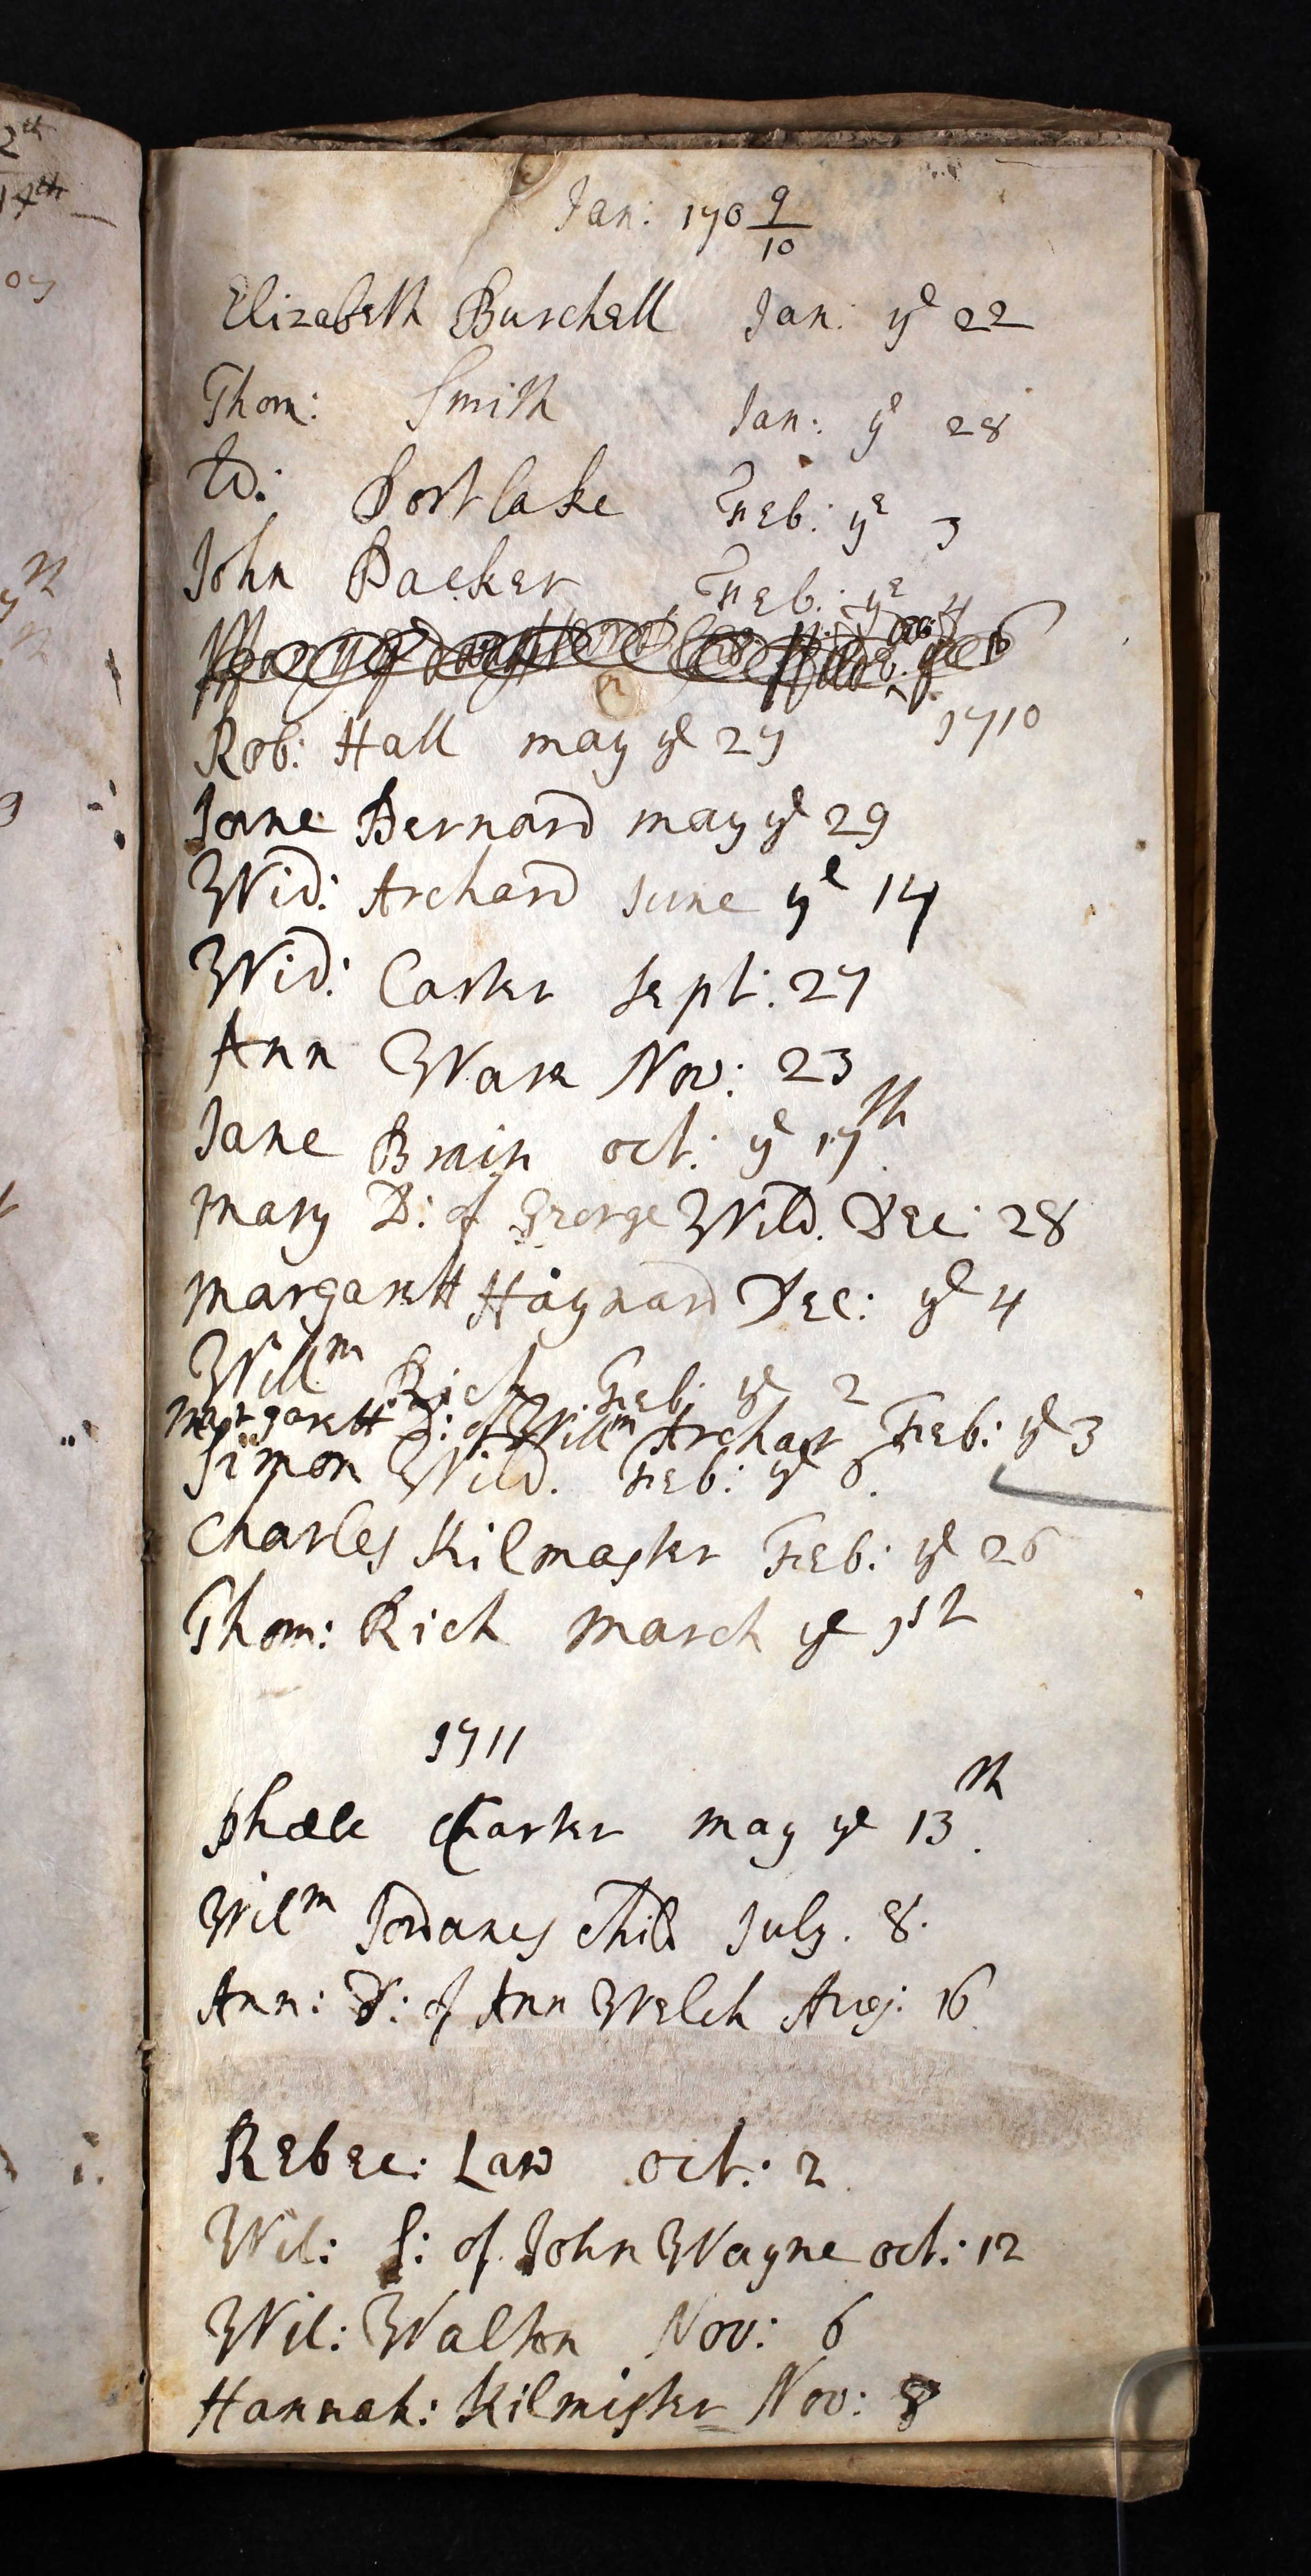 2th
14th
Jan: 170 9/10
Elizabeth Burchell Jan: ye 22
Thom: Smith Jan: ye 28
Ed: Portlake Feb: ye 3
John Packer Feb: ye 4
1710
Rob: Hall may ye 27
Jane Bernard may ye 29
Wid: Archard June ye 14
Wid: Carter Sept: 27
Ann Ware Nov: 23
Jane Brain oct: ye 17th
Mary D: of George Wild. Dec: 28
Margarett Haynard Dec: ye 4
Willm Rich Feb: ye 2
Margarett D: of Willm Archar Feb: ye 3
Simon Wild. Feb: ye 6.
Charles Kilmaster Feb: ye 26
Thom: Rich March ye 1st
1711
Carter may ye 13th.
Wilm Jordanes Child July. 8.
Ann: D: of Ann Welch Aug: 16
Rebec: Law oct: 2
Wil: S: of John Wayne oct: 12
Wil: Walton Nov: 6
Hannah: Kilmister Nov: 8